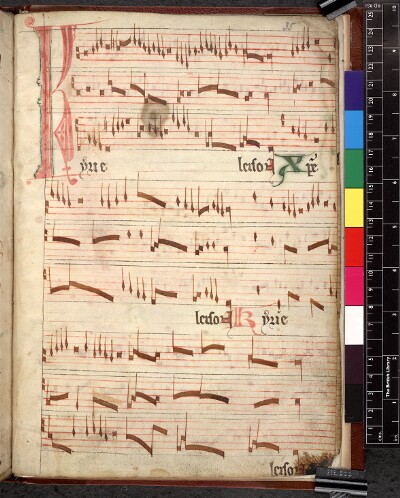 35
Kyrie leison Xpe
leison Kyrie
leison
The British Library